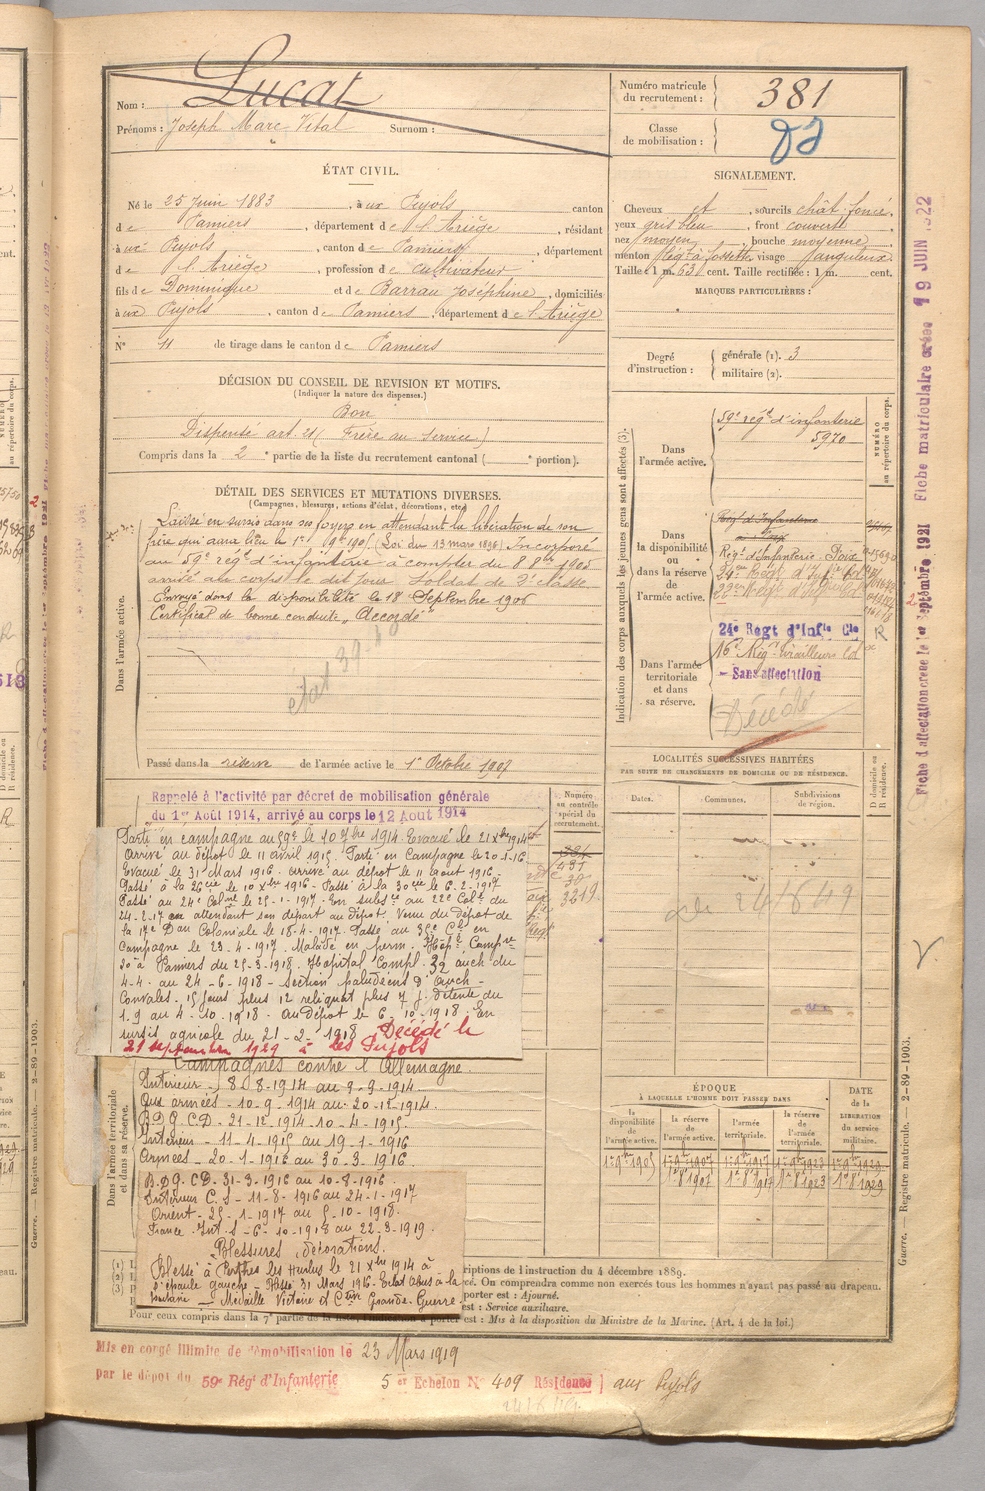 Nom : Lucat
Prénoms : Joseph Marc Vital Surnom :
Numéro matricule
du recrutement : 381
Classe
de mobilisation :
ÉTAT CIVIL.
Né le 25 Juin 1883, à ux Pujols canton
de Pamiers, département de l'Ariège, résidant
à ux Pujols, canton de Pamiers, département
de l'Ariège, profession de cultivateur
fils de Dominique et de Barrau Joséphine, domiciliés
à ux Pujols, canton de Pamiers, département de l'Ariège
N° 11 de tirage dans le canton de Pamiers
SIGNALEMENT.
Cheveux et, sourcils chât. foncé,
yeux gris bleu, front couvert,
nez moyen, bouche moyenne,
menton à fossette, visage
Taille : 1 m. 63 cent. Taille rectifiée : 1 m. cent.
MARQUES PARTICULIÈRES :
Degré
d'instruction :
générale (1). 3
militaire (2).
DÉCISION DU CONSEIL DE REVISION ET MOTIFS.
(Indiquer la nature des dispenses.)
Bon
Dispensé art. 21 (Frère au service)
Compris dans la 2e partie de la liste du recrutement cantonal ( e portion).
DÉTAIL DES SERVICES ET MUTATIONS DIVERSES.
(Campagnes, blessures, actions d'éclat, décorations, etc.)
Dans l'armée active.
Laissé en sursis dans ses foyers en attendant la libération de son
frère qui aura lieu le 1er 9bre 1905 (Loi du 13 mars 1896) Incorporé
au 59e régt d'infanterie à compter du 8 8bre 1905
arrivé au corps le dit jour Soldat de 2e classe
Envoyé dans la disponibilité le 18 Septembre 1906
Certificat de bonne conduite "Accordé"
Passé dans la réserve de l'armée active le 1er Octobre 1907
Indication des corps auxquels les jeunes gens sont affectés (3).
NUMÉRO
au répertoire du corps.
Dans
l'armée active.
59e régt d'infanterie
5970
Dans
la disponibilité
ou
dans la réserve
de
l'armée active.
Regt d'Infanterie
Regt d'Infanterie Foix
24e Regt d'Infie Col
22e Regt d'Infie Col
24e Regt d'Infie Cle
R
Dans l'armée
territoriale
et dans
sa réserve.
16e Régt Tirailleurs Col
- Sans affectation
Décédé
Fiche d'affectation créée le 1er Septembre 1921 Fiche matriculaire créée 19 JUIN 1922
LOCALITÉS SUCCESSIVES HABITÉES
PAR SUITE DE CHANGEMENTS DE DOMICILE OU DE RÉSIDENCE.
D domicile ou
R résidence.
Dates. Communes. Subdivisions
de région.
Rappelé à l'activité par décret de mobilisation générale
du 1er Août 1914, arrivé au corps le 12 Août 1914
Numéro
au contrôle
spécial du
recrutement.
3219
Parti en campagne au 59e le 10 7bre 1914. Evacué le 21 Xbre 1914
Arrivé au dépôt le 11 avril 1915. Parti en Campagne le 20-1-16
Evacué le 31 Mars 1916. arrivé au dépôt le 11 aout 1916.
Passé à la 26e Cie le 10 Xbre 1916 - Passé à la 30e Cie le 6-2-1917
Passé au 24e Colnial le 25-1-1917. En subsce au 22e Colal du
24-2-17 en attendant son départ au Dépôt. Venu du dépôt de
la 17e Don Coloniale le 18-4-1917. Passé au 35e Cal en
Campagne le 23-4-1917. Malade en perm. Hôpt Compre
20 à Pamiers du 25-3-1918. Hopital Compl. 32 auch du
4-4. au 24-6-1918 - section paludéens d'Auch -
Convales. 15 jours plus 12 reliquat plus 7 j. détente du
1.9 au 4-10-1918. au Dépôt le 6-10-1918. En
sursis agricole du 21-2-1918. Décédé le
21 septembre 1929 à les Pujols
Dans l'armée territoriale
et dans sa réserve.
Campagnes contre l'Allemagne.
Intérieur - 8-8-1914 au 9-9-1914
Aux armées - 10-9-1914 au 20-12-1914
B.D.G. C.D - 21-12-1914 10-4-1915
Intérieur - 11-4-1915 au 19-1-1916
Armées - 20-1-1916 au 30-3-1916.
B.D.G. CD. 31-3-1916 au 10-8-1916.
Intérieur C.S - 11-8-1916 au 24-1-1917
Orient - 25-1-1917 au 5-10-1918.
France. Int. S - 6-10-1918 au 22-3-1919.
Blessures, décorations.
Blessé à Perthes les Hurlus le 21 Xbre 1914 à
l'épaule gauche - Blessé 31 Mars 1916 - Eclat Obus à la
- Médaille Victoire et Ctive Grande Guerre.
ÉPOQUE
À LAQUELLE L'HOMME DOIT PASSER DANS
la
disponibilité
de
l'armée active.
la réserve
de
l'armée active.
l'armée
territoriale.
la réserve
de
l'armée
territoriale.
DATE
de la
LIBÉRATION
du service
militaire.
1er 9bre 1905 1er 9bre 1907 1er 9bre 1917 1er 9bre 1923 1er 9bre 1929
1er 8bre 1907 1er 8bre 1917 1er 8bre 1923 1er 8bre 1929
Guerre. — Registre matricule. — 2-89-1903.
(1)
(2)
(3)
riptions de l'instruction du 4 décembre 1889.
cé. On comprendra comme non exercés tous les hommes n'ayant pas passé au drapeau.
porter est : Ajourné.
est : Service auxiliaire.
Pour ceux compris dans la 7e partie de la liste, l'indication à porter est : Mis à la disposition du Ministre de la Marine. (Art. 4 de la loi.)
Mis en congé illimité de démobilisation le 23 Mars 1919
par le dépôt du 59e Régt d'Infanterie 5e Echelon N° 409 Résidence aux Pujols